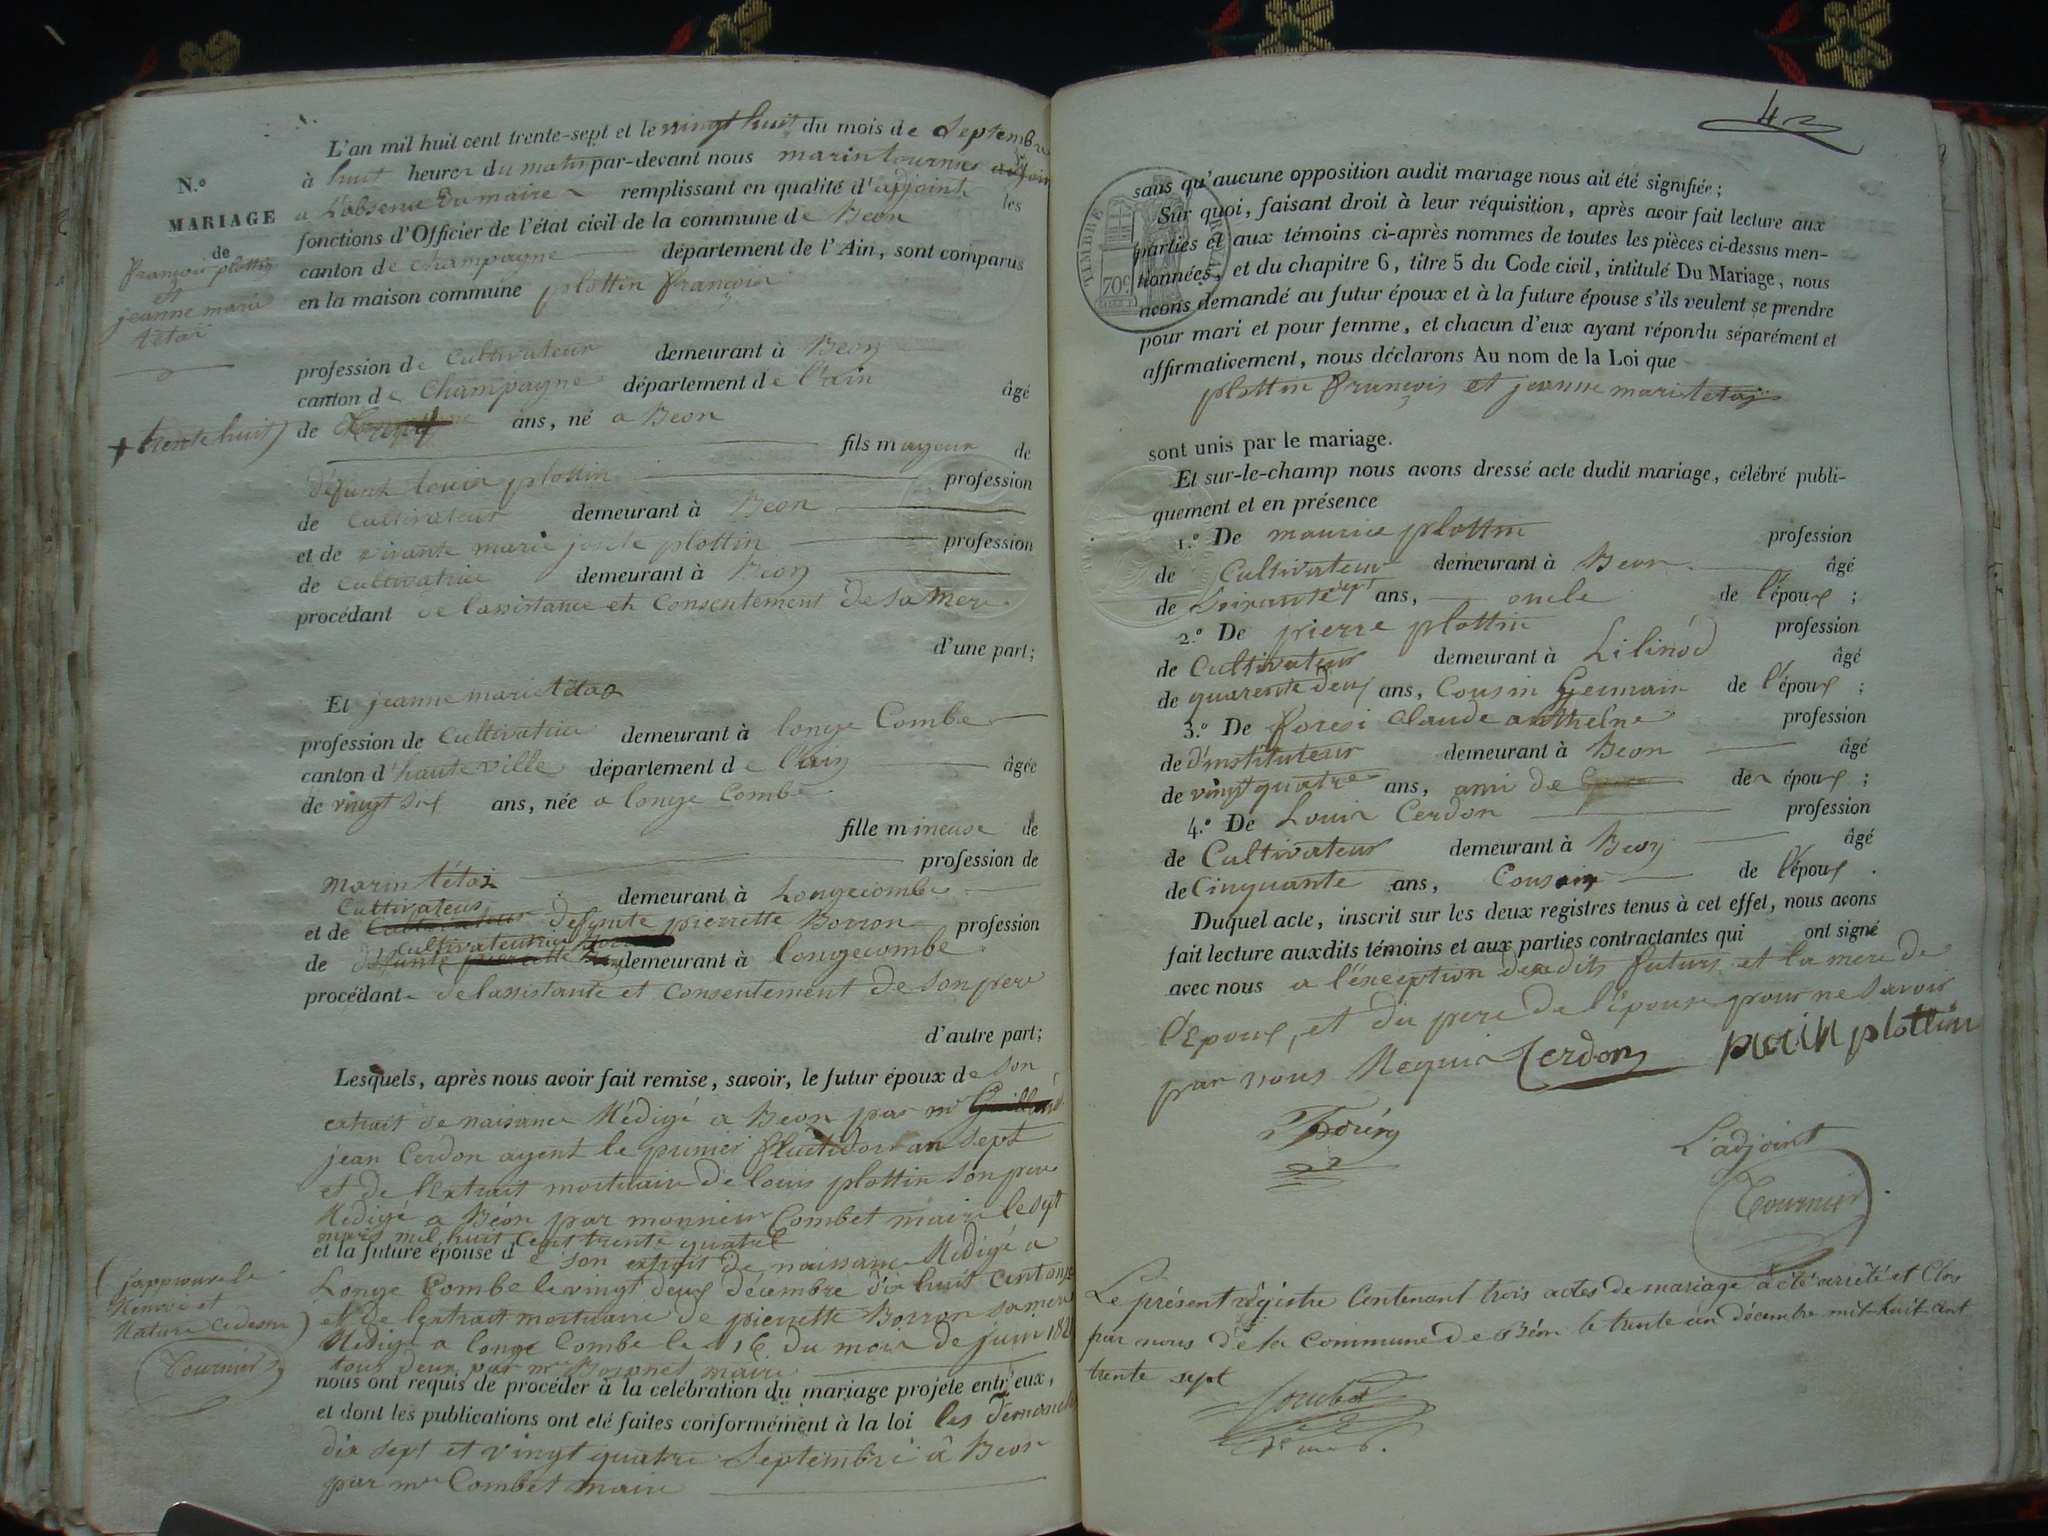 N.º
MARIAGE
de
françois plottin
et
jeanne marie
tétaz
L'an mil huit cent trente-sept et le vingt huit du mois de Septembre
à huit heures du matin par-devant nous marin tournier adjoint
a L'absence du maire remplissant en qualité d'adjoint les
fonctions d'Officier de l'état civil de la commune de Béon
canton de champagne département de l'Ain, sont comparus
en la maison commune plottin françois
profession de Cultivateur demeurant à Béon
canton de Champagne département de l'ain âgé
+ trente huit) de ans, né a Beon
fils mayeur de
défunt louis plottin profession
de Cultivateur demeurant à Beon
et de vivante marie plottin profession
de Cultivatrice demeurant à Beon
procédant de lassistance et Consentement de Sa mere
d'une part;
Et jeanne marie tétaz
profession de Cultivatrice demeurant à longe Combe
canton d'hauteville département de l'ain âgée
de vingt six ans, née a longe Combe
fille mineuse de
marin tétaz profession de
Cultivateur demeurant à Longecombe
et de defunte pierrette Borron profession
de Cultivateur demeurant à longecombe
procédante de lassistante et Consentement de Son pere
d'autre part;
Lesquels, après nous avoir fait remise, savoir, le futur époux de son
extrait de naisance Rédigé a Beon par mr
jean Cerdon agent le premier fructidor an Sept
et de l'Extrait mortuaire de louis plottin Son pere
Rédigé a Béon par monsieur Combet maire le Sept
mars mil huit Cent trente quatre
et la future épouse de son extrait de naissance Rédigé a
Longe Combe le vingt deux décembre dix huit Cent onze
et de lextrait mortuaire de pierrette Borron sa mere
Rédigé a longe Combe le 16 du mois de juin 182
tous deux par mr maire
nous ont requis de procéder à la celébration du mariage projeté entr'eux,
et dont les publications ont eté faites conformément à la loi les Dimanche
dix sept et vingt quatre Septembre à Beon
par mr Combet maire
( japprouve le
Renvoi et
Rature ci dessu )
Tournier
42
TIMBRE ROYAL
70c
sans qu'aucune opposition audit mariage nous ait été signifiée;
Sur quoi, faisant droit à leur réquisition, après avoir fait lecture aux
parties et aux témoins ci-après nommes de toutes les pièces ci-dessus men-
tionnées, et du chapitre 6, titre 5 du Code civil, intitulé Du Mariage, nous
avons demandé au futur époux et à la future épouse s'ils veulent se prendre
pour mari et pour femme, et chacun d'eux ayant répondu séparément et
affirmativement, nous déclarons Au nom de la Loi que
plottin françois et jeanne marie tetaz
sont unis par le mariage.
Et sur-le-champ nous avons dressé acte dudit mariage, célébré publi-
quement et en présence
1.º De maurice plottin profession
de Cultivateur demeurant à Beon âgé
de Soixante sept ans, oncle de l'époux ;
2.º De pierre plottin profession
de Cultivateur demeurant à Lilinod âgé
de quarente deux ans, Cousin Germain de l'époux ;
3.º De foresi Claude anthelme profession
de d'instituteur demeurant à Beon âgé
de vingt quatre ans, ami de de époux ;
4.º De Louis Cerdon profession
de Cultivateur demeurant à Beon âgé
de Cinquante ans, Cousin de l'époux .
Duquel acte, inscrit sur les deux registres tenus à cet effet, nous avons
fait lecture auxdits témoins et aux parties contractantes qui ont signé
avec nous a l'éxception desdits futurs et la mere de
l'Epoux, et du pere de l'épouse pour ne Savoir
par nous Requis Cerdon plottin
L'adjoint
Tournier
Le présent régistre Contenant trois actes de mariage a été arrêté et Clos
par nous de la Commune de Béon le trente un décembre mil huit cent
trente sept
Combet